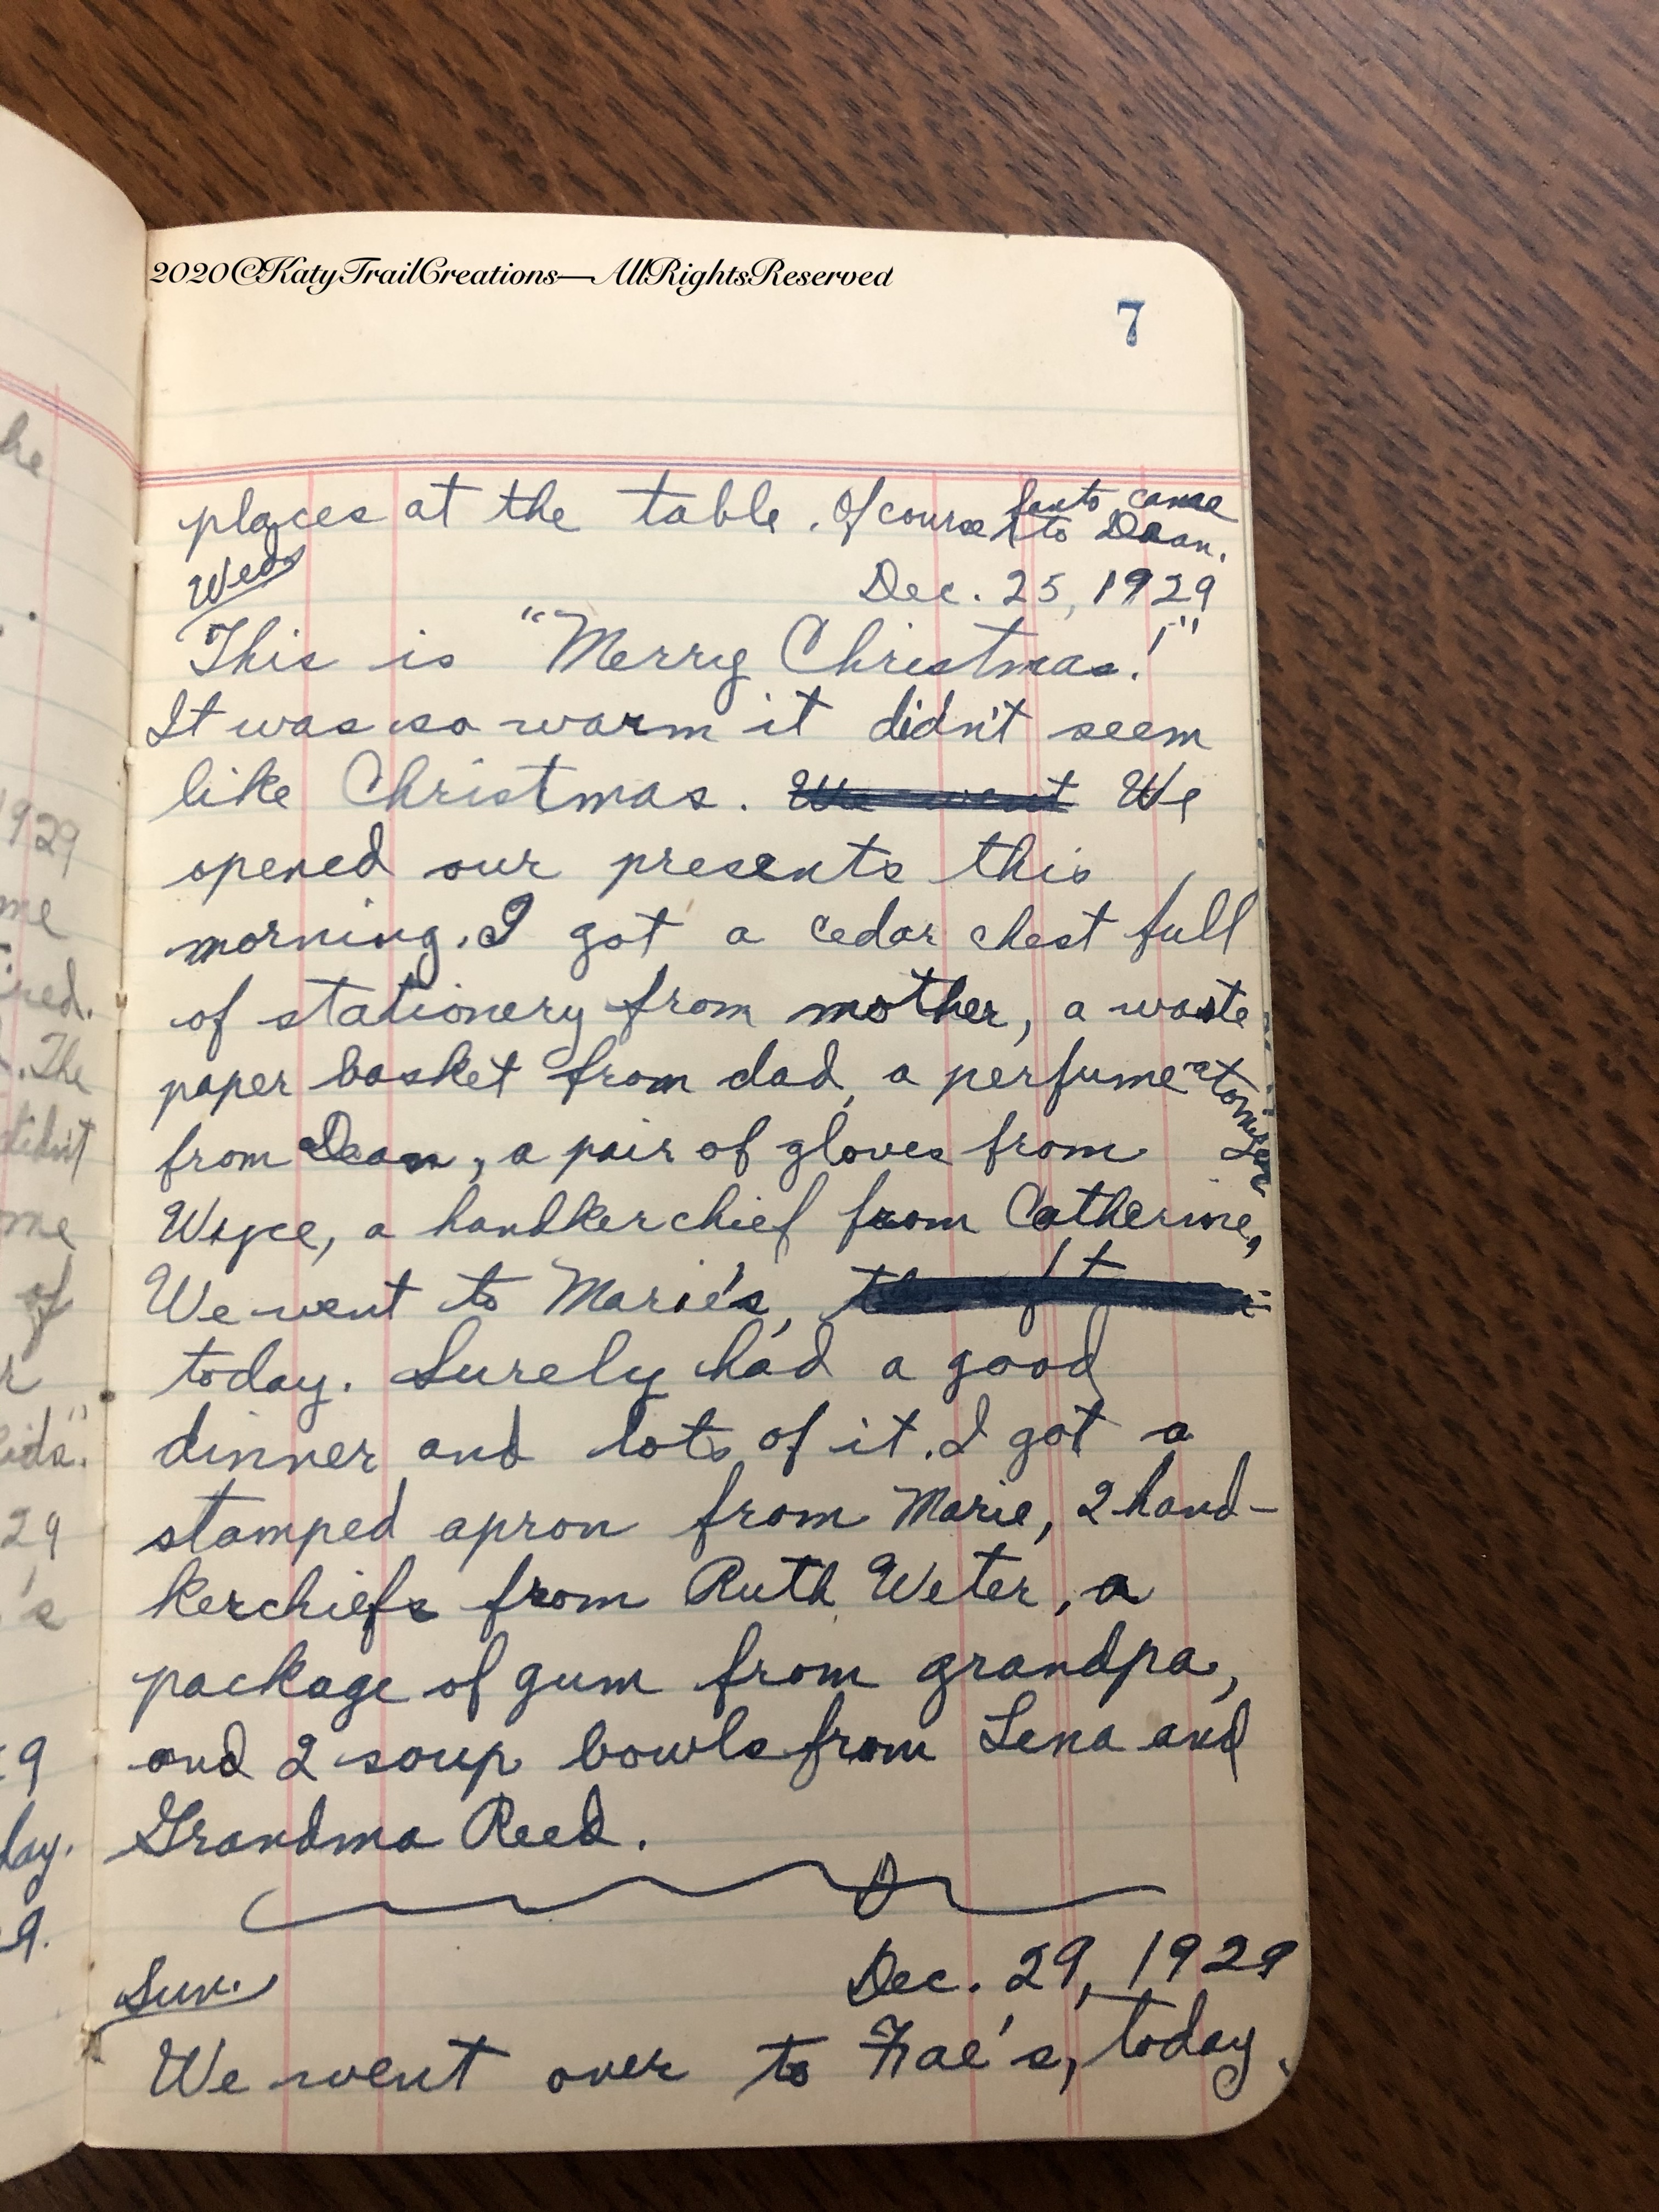 2020©KatyTrailCreations—AllRightsReserved
7
places at the table. Of course Santa came to Dean.
Weds
Dec. 25, 1929
This is "Merry Christmas!"
It was so warm it didn't seem
like Christmas. We went We
opened our presents this
morning. I got a cedar chest full
of stationery from mother, a waste
paper basket from dad, a perfume atomizer
from Dean, a pair of gloves from
Wiyce, a handkerchief from Catherine,
We went to Marie's,
today. Surely had a good
dinner and lots of it. I got a
stamped apron from Marie, 2 hand-
kerchiefs from Ruth Weter, a
package of gum from grandpa,
and 2 soup bowls from Lena and
Grandma Reed.
Sun.
Dec. 29, 1929
We went over to Fae's, today.